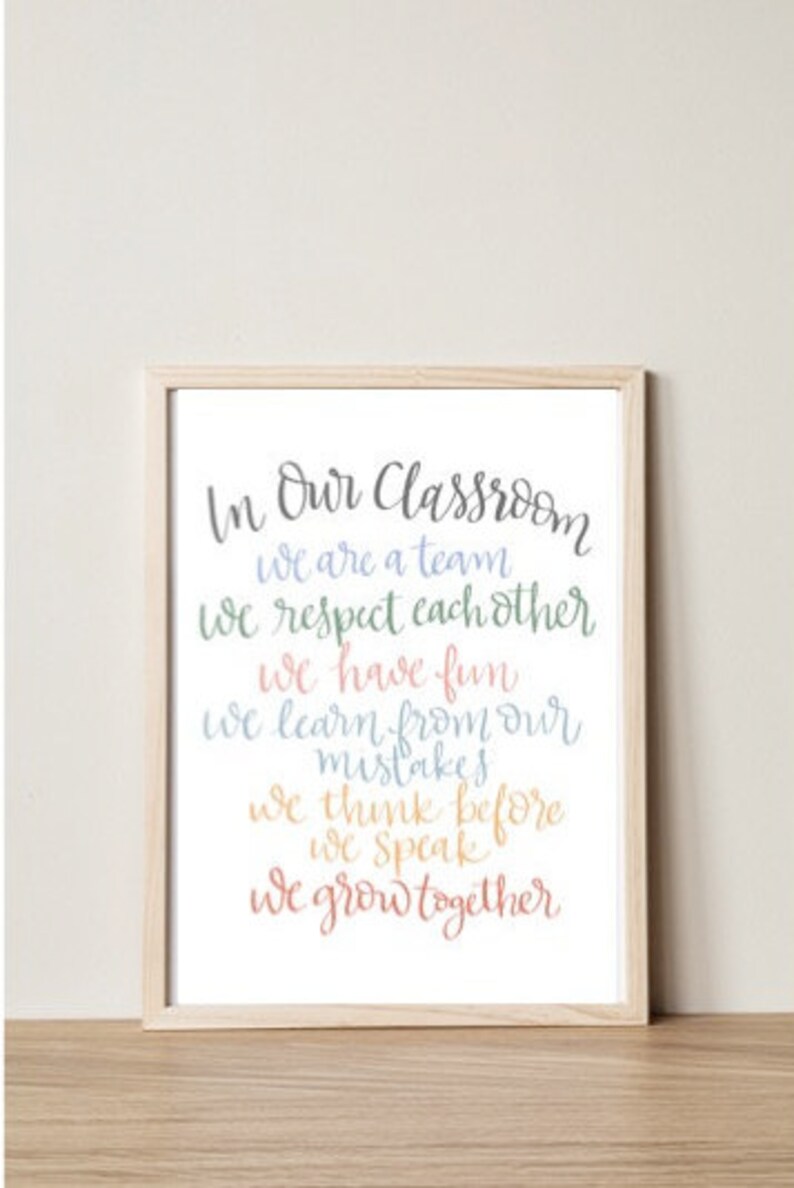 In Our Classroom
we are a team
we respect each other
we have fun
we learn from our
mistakes
we think before
we speak
we grow together